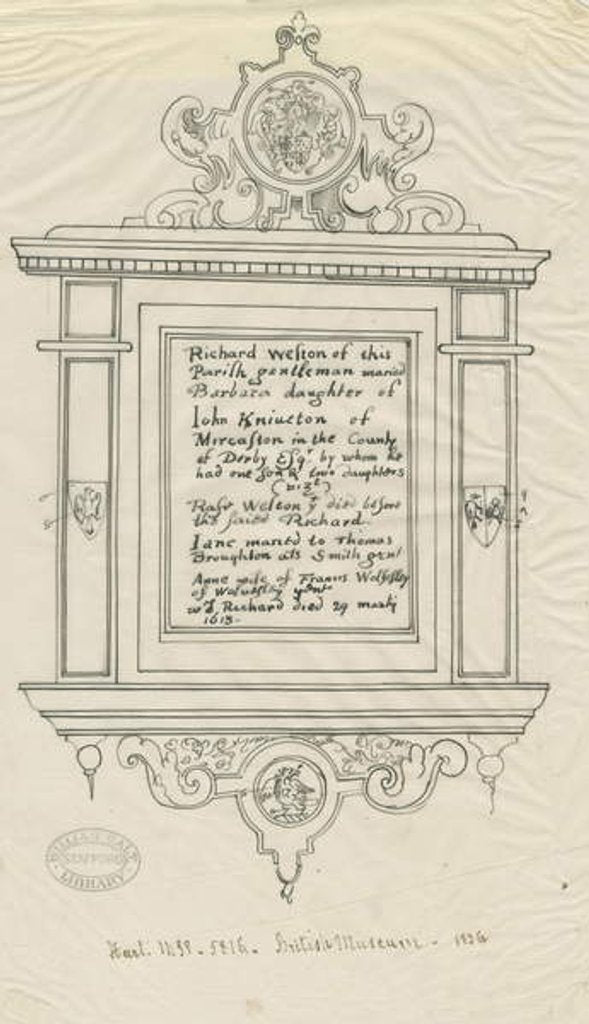 Richard Weſton of this
Pariſh gentleman maried
Barbara daughter of
Iohn Kniueton of
Mircaſton in the County
of Derby Eſqr by whom he
had one ſon & two daughters
(vizt)
Rafe Weſton yt died before
the ſaied Richard.
Iane maried to Thomas
Broughton als Smith gent
Anne wife of Francis Wolſeſley
of Wolueſley gent
wch Richard died 29 martij
1613.
WILLIAM SALT
STAFFORD
LIBRARY
Harl. MSS. 5816. British Museum. 1836